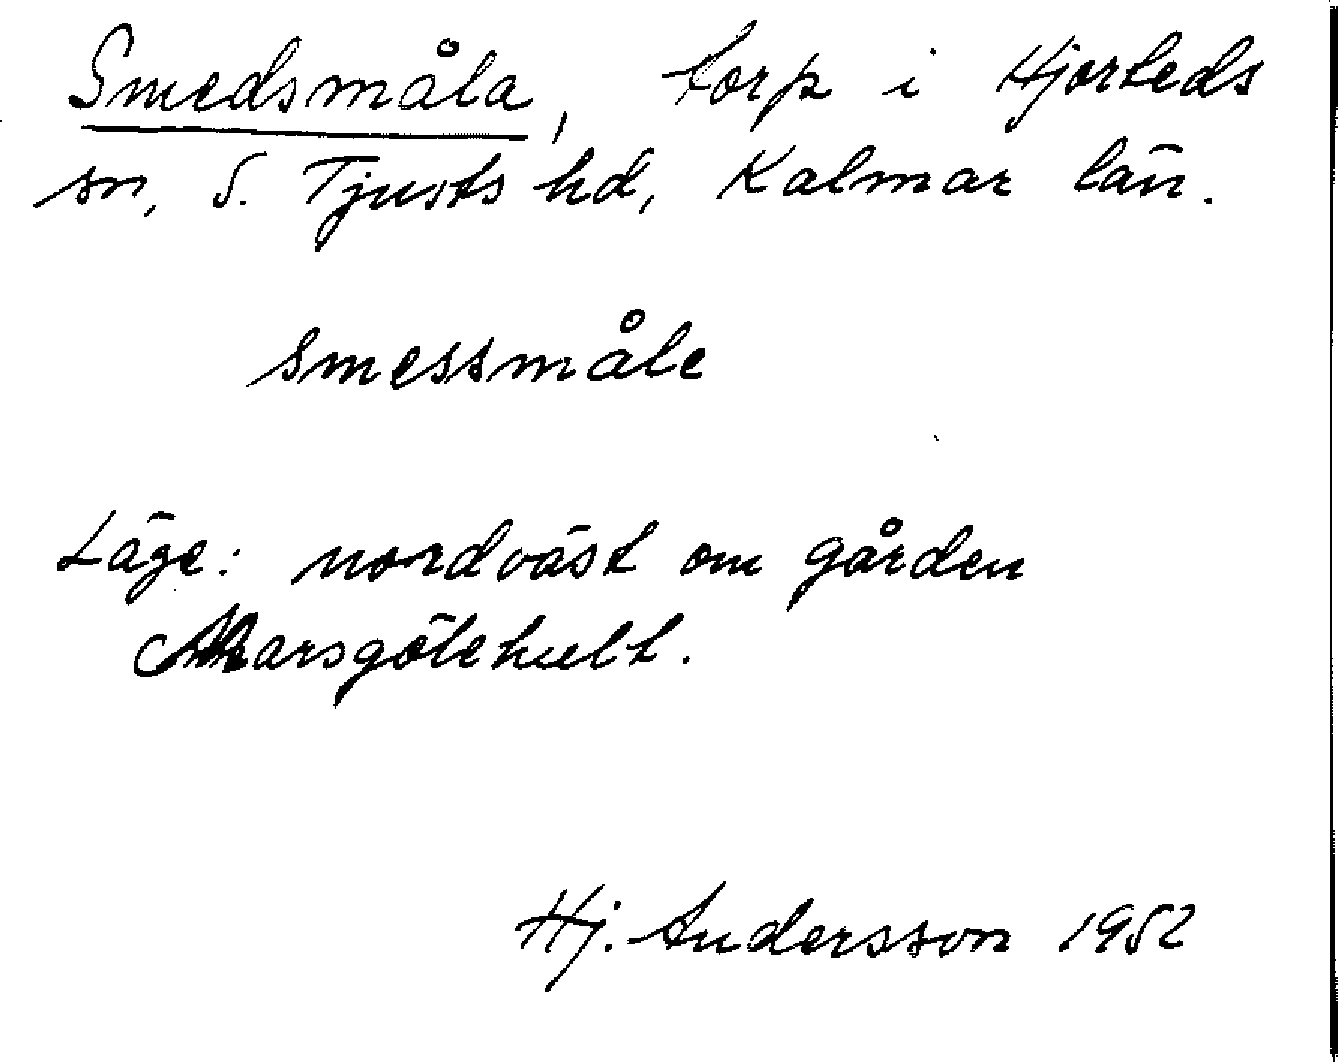 Smedsmåla, torp i Hjorteds
sn, S. Tjusts hd, Kalmar län.
smessmåle
Läge: nordväst om gården
Marsgötehult.
Hj. Andersson 1952